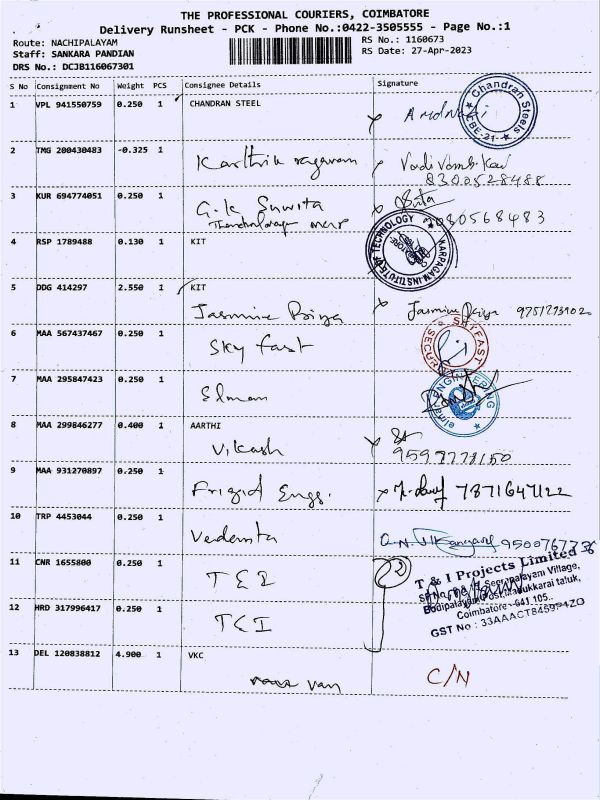 THE PROFESSIONAL COURIERS, COIMBATORE
Delivery Runsheet - PCK - Phone No.:0422-3505555 - Page No.:1
Route: NACHIPALAYAM
RS No.: 1160673
Staff: SANKARA PANDIAN
RS Date: 27-Apr-2023
DRS No.: DCJB116067301
S No Consignment No Weight PCS Consignee Details Signature
1 VPL 941550759 0.250 1 CHANDRAN STEEL
Chandran Steels
CBE-21
2 TMG 200430483 -0.325 1
Karthik ragavan
8300528488
3 KUR 694774051 0.250 1
G.K Sunita
4 RSP 1789488 0.130 1 KIT
KARPAGAM INSTITUTE OF TECHNOLOGY
5 DDG 414297 2.550 1 KIT
Jasmine Priya Jasmine Priya
6 MAA 567437467 0.250 1
Sky fast
SKYFAST SECURE
7 MAA 295847423 0.250 1
Elman
ENGINEERING
8 MAA 299846277 0.400 1 AARTHI
Vikash
9 MAA 931270897 0.250 1
Frigid Engs. 7871647122
10 TRP 4453044 0.250 1
Vedanta
11 CNR 1655800 0.250 1
T & I Projects Limited
Seerapalayam Village,
Bodipalayam Post, Madukkarai taluk,
Coimbatore - 641 105.
GST No :
12 HRD 317996417 0.250 1
TCI
13 DEL 120838812 4.900 1 VKC
van
C/N